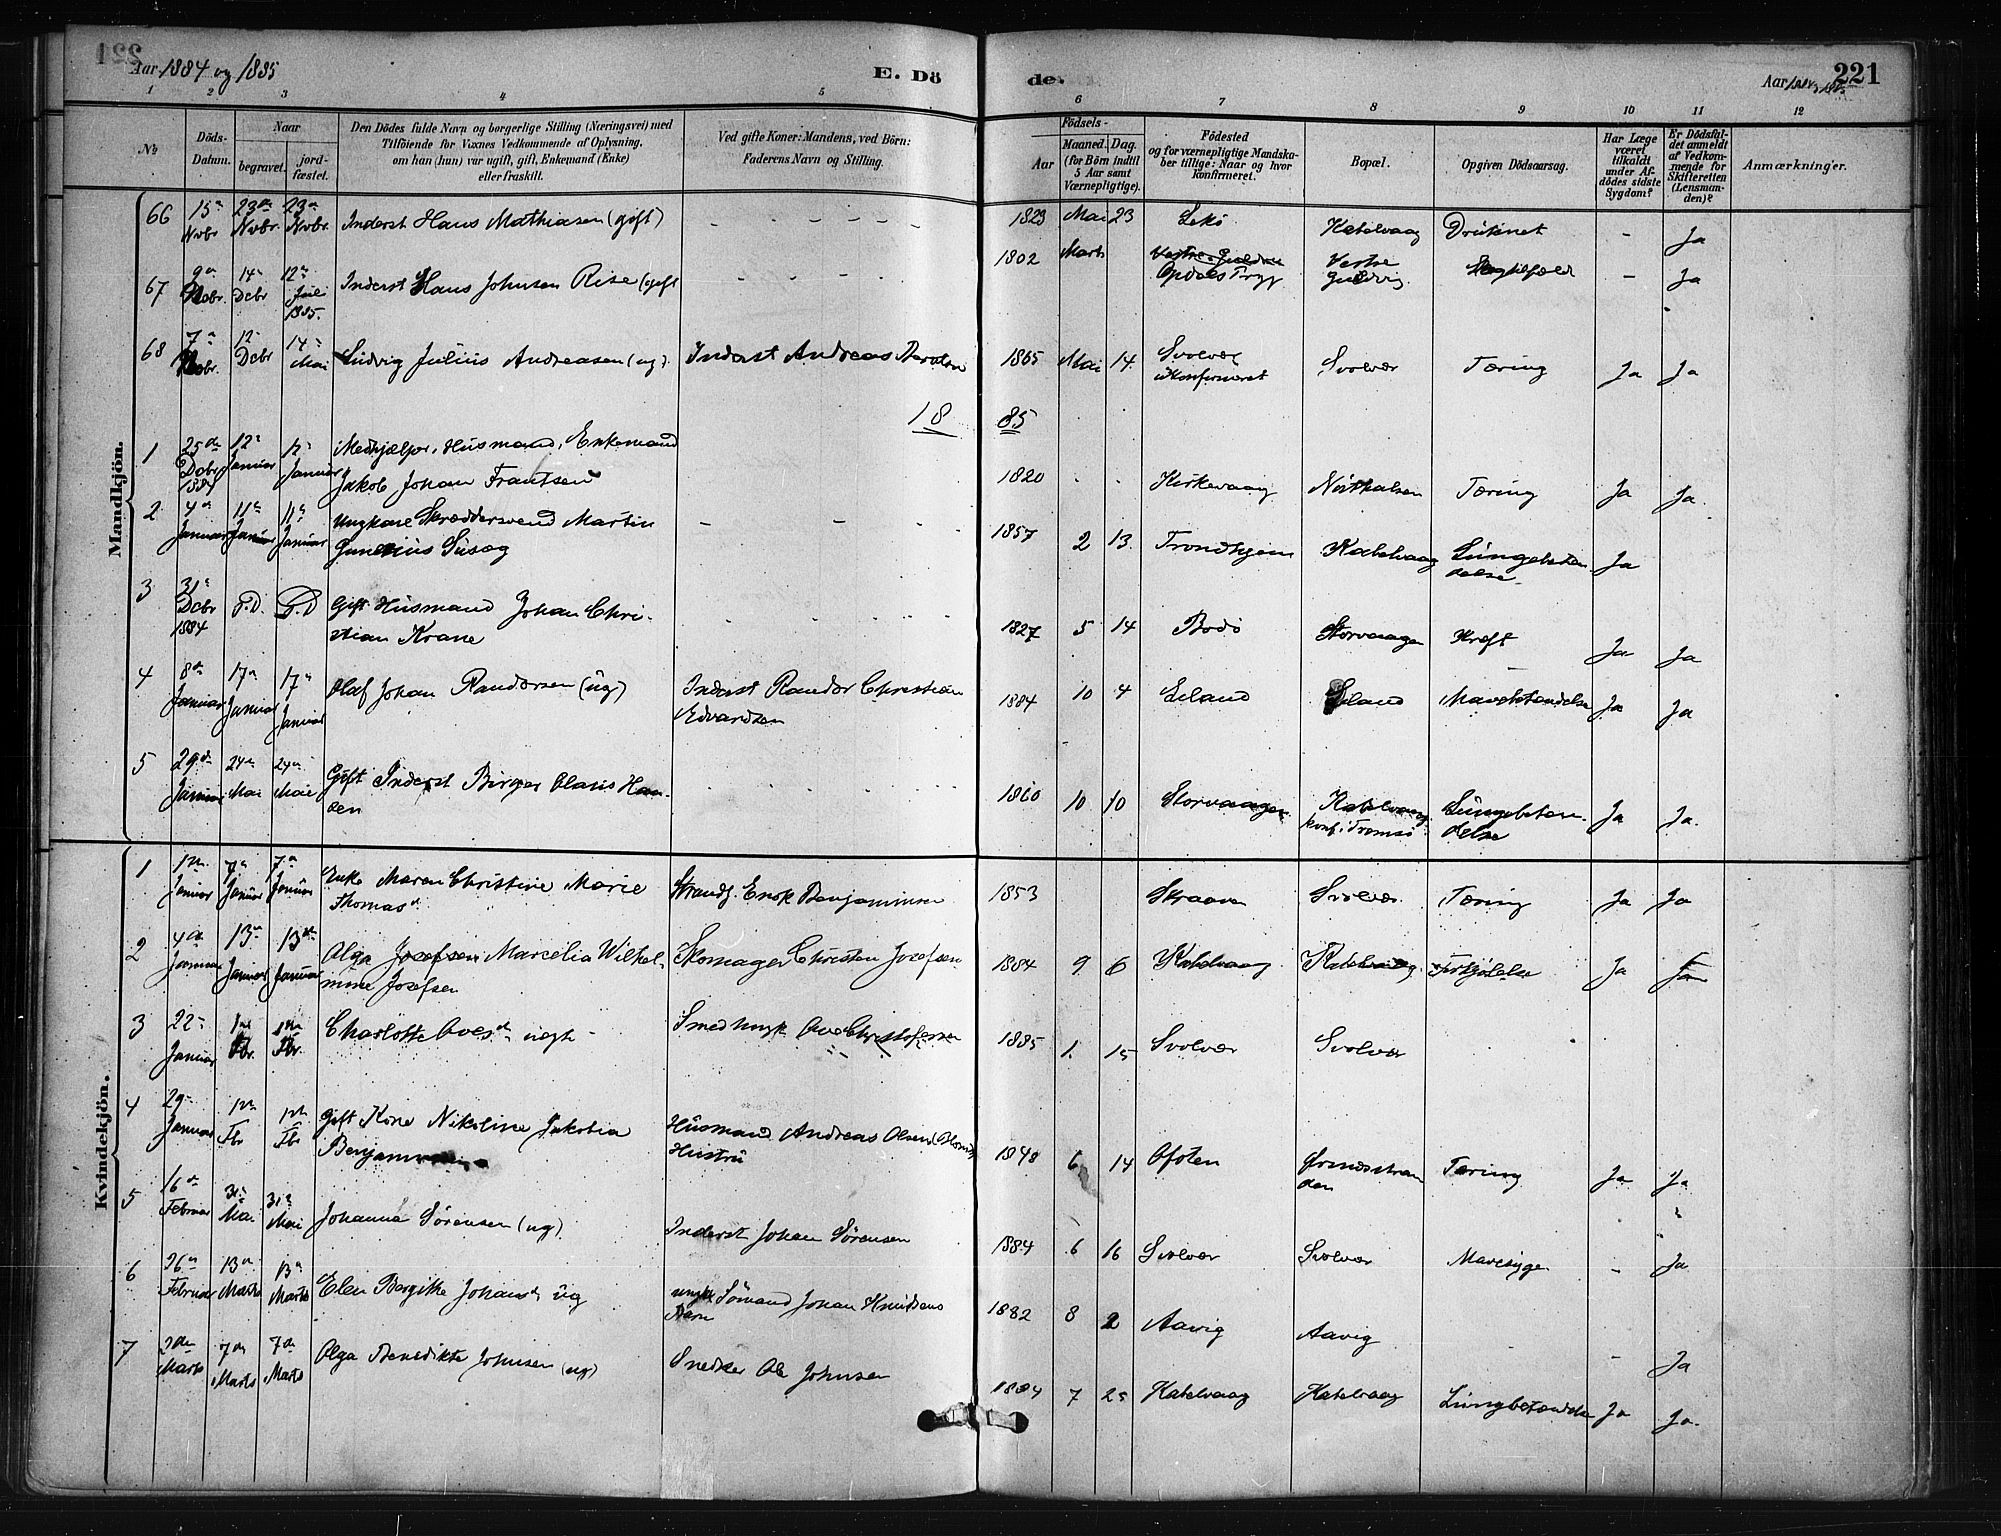 221
Aar 1884 og 1885
E. Döde.
Aar
221
1 2 3 4 5 6 7 8 9 10 11 12
No
Döds-Datum.
Naar
begravet.
jord-fæstet.
Den Dödes fulde Navn og borgerlige Stilling (Næringsvei) med
Tilföiende for Voxnes Vedkommende af Oplysning,
om han (hun) var ugift, gift, Enkemand (Enke)
eller fraskilt.
Ved gifte Koner: Mandens, ved Börn:
Faderens Navn og Stilling.
Födsels-
Aar
Maaned. (for Börn indtil 5 Aar samt Værnepligtige).
Dag.
Födested
og for værnepligtige Mandska-
ber tillige: Naar og hvor
konfirmeret.
Bopæl.
Opgiven Dödsaarsag.
Har Læge været tilkaldt under Af-dödes sidste Sygdom?
Er Dödsfal-det anmeldt af Vedkom-mende for Skifteretten (Lensman-den)?
Anmærkninger.
Mandkjön.
66 15de Nvbr. 23de Nvbr. 23de Nvbr. Inderst Hans Mathiasen (gift) 1823 Mai 23 Lekö Kabelvaag Druknet - Ja
67 9de Dcbr. 14de Dcbr 12te Juli 1885. Inderst Hans Johnsen Rise (gift 1802 Marts Opdals Vestre - Ja
68 7de Dcbr 12 Dcbr 14de Mai Ludvig Julius Andreasen (ug). Inderst Andreas 1865 Mai 14. Svolvær ukonfirmeret Svolvær Tæring Ja Ja
18 85
1 25de Dcbr 1884 12te Januar 12te Januar Medhjælper, Husmand, Enkemand
Jakob Johan Frantsen 1820 Kirkevaag Tæring Ja Ja.
2 4de Januar 11te Januar 11te Januar Ungkarl Skræddersvend Martin
Gunerius Susag 1857 2 13. Trondhjem Kabelvaag Lungebetæn
delse Ja
3 31te Dcbr 1884 F.D. F.D Gift Husmand Johan Chri-
stian Krane 1827 5 14 Bodö Storvaagen Kræft Ja Ja
4 8de Januar 17de Januar 17de Januar Olaf Johan Randorsen (ug) Inderst Randor Christian
Edvardsen 1884 10 4 Eiland Eiland Mavebetændelse Ja Ja
5 29de Januar 24de Mai 24de Mai Gift Inderst Birger Olaus Han-
sen 1860 10 10 Storvaagen Kabelvaag
konf. i Tromsö Lungebetæn
delse Ja Ja.
Kvindekjön.
1 1ste Januar 7de Januar 7de Januar Enke Maren Christine Marie
Thomasd. Strands. Enok Benjaminsen 1853 Skraaven Svolvær. Tæring Ja Ja
2 4de Januar 13de Januar 13de Januar Olga Josefsen Marcelia Wilhel-
mine Josefsen Skomager Christen Josefsen 1884 9 6 Kabelvaag Kabelvaag. Forkjölelse Ja Ja
3 22de Januar 1ste Fbr. 1ste Fbr. Charlotte Ovesd. uægte Smed Ungk Ove Christofersen 1885 1. 15 Svolvær Svolvær
4 29de Januar 1ste Fbr 1ste Fbr Gift Kone Nikoline Jakobia
Husmand Andreas Olsen
Hustru 1848 6 14 Ofoten Örsnesstran
den Tæring Ja Ja
5 16de Februar 31te Mai 31te Mai Johanna Sörensen (ug). Inderst Johan Sörensen 1884 6 16 Svolvær Svolvær Mavesyge - Ja
6 26de Februar 13de Marts 13de Marts Elen Bergitte Johansd. ug ungk Sömand Johan Knudsens
Barn 1882 8 2 Aavig Aavig - Ja
7 2den Marts 7de Marts 7de Marts Olga Benedikte Johnsen (ug) Snedker Ole Johnsen 1884 7 25 Kabelvaag Kabelvaag Lungbetændelse Ja Ja.